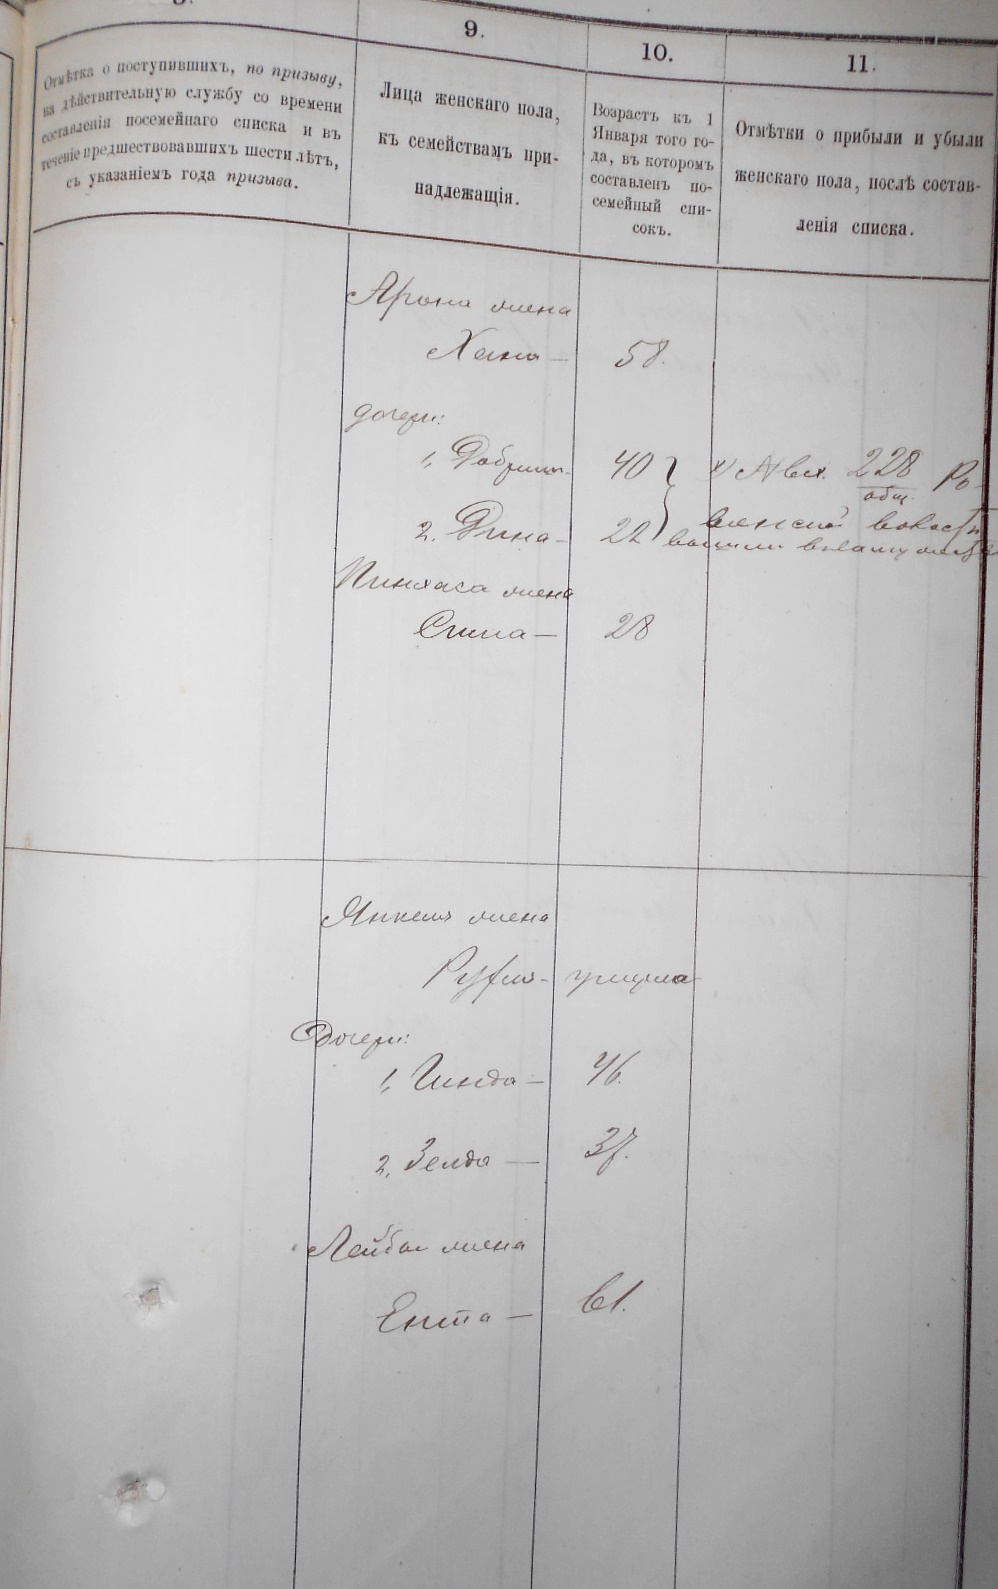 9.
10.
11.
Отмѣтка о поступившихъ, по призыву,
на дѣйствительную службу со времени
составленія посемейнаго списка и въ
теченіе предшествовавшихъ шести лѣтъ,
съ указаніемъ года призыва.
Лица женскаго пола,
къ семействамъ при-
надлежащія.
Возрастъ къ 1
Января того го-
да, въ которомъ
составленъ по-
семейный спи-
сокъ.
Отмѣтки о прибыли и убыли
женскаго пола, послѣ состав-
ленія списка.
Арона жена
Хана — 58.
дочери:
1, Добриш- 40
2. Дина - 22
228 Ро-
общ.
вышли въ замужество
Пинхаса жена
28
Янкеля жена
умерла
Дочери:
1, Гинда — 46.
2, Зелда — 37.
Лейбы жена
Ента — 61.